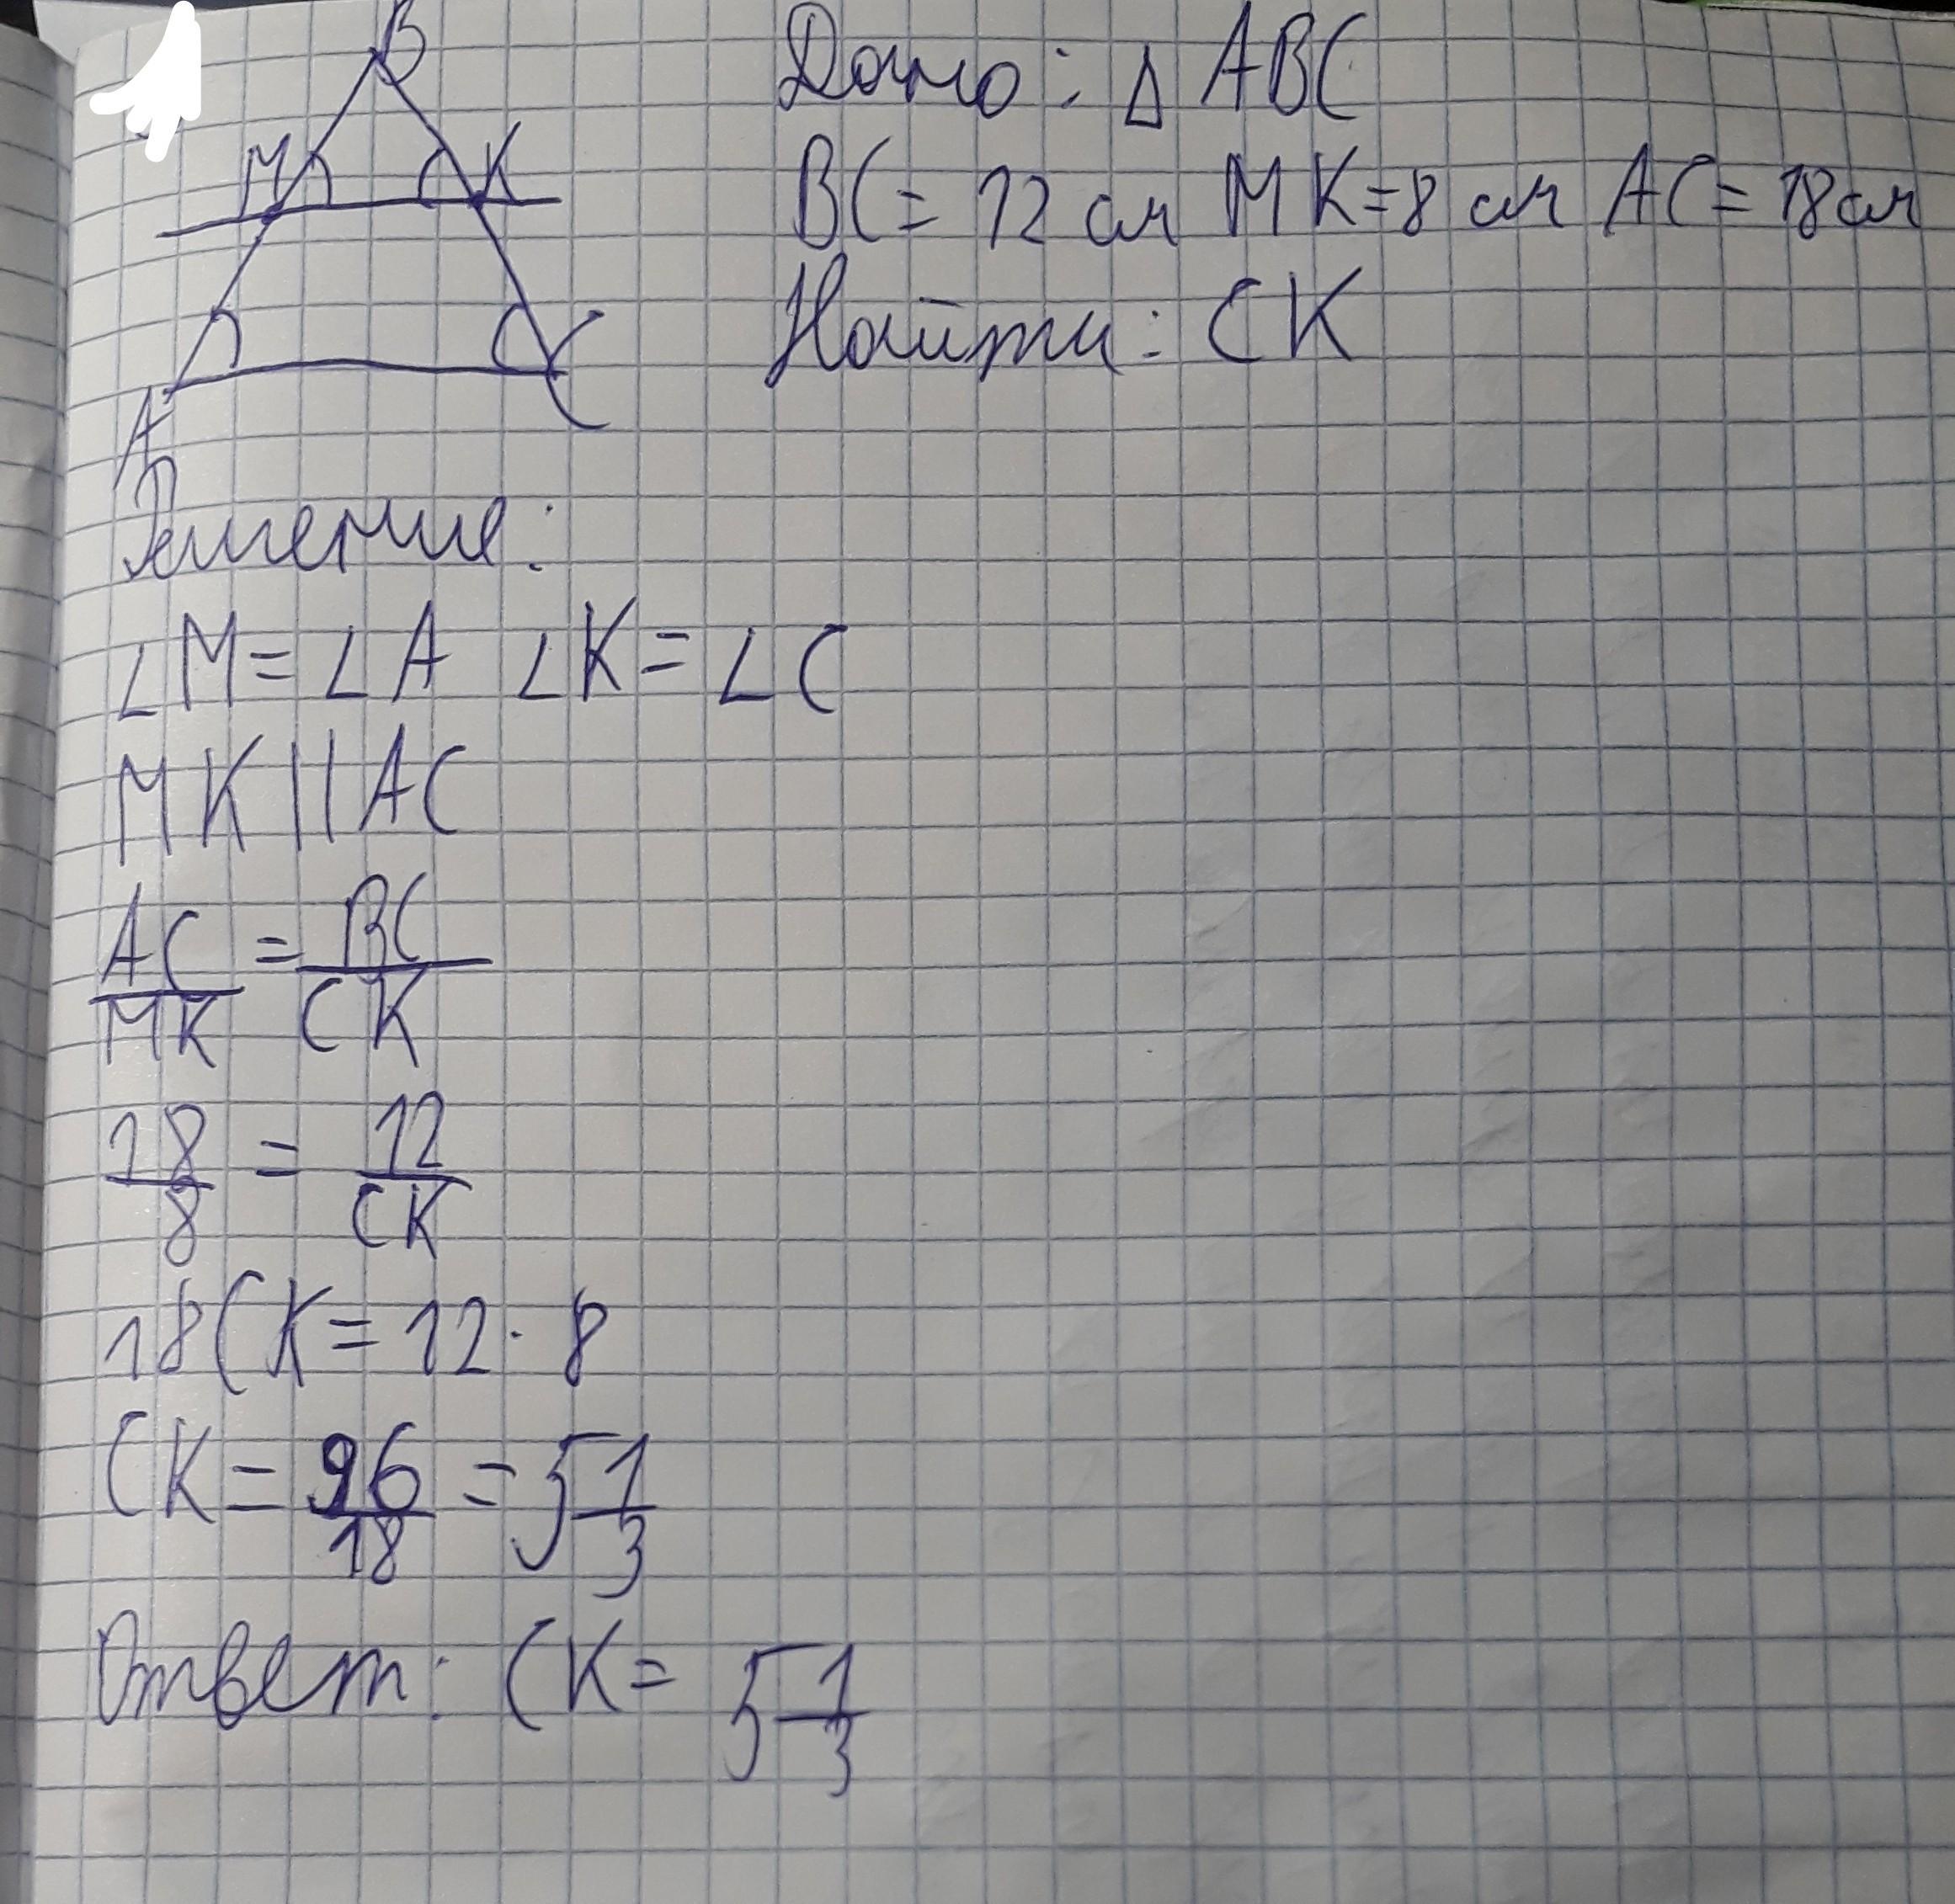 B
M K
A C
Дано: Δ ABC
BC = 12 см MK = 8 см AC = 18 см
Найти: CK
Решение:
∠M = ∠A ∠K = ∠C
MK || AC
AC/MK = BC/CK
18/8 = 12/CK
18CK = 12 · 8
CK = 96/18 = 5 1/3
Ответ: CK = 5 1/3